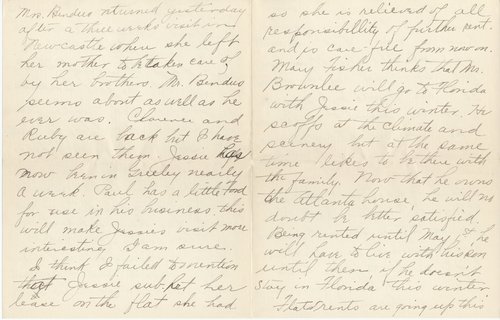 Mrs. Bendus returned yesterday
after a three weeks visit in
Newcastle where she left
her mother to be taken care of
by her brothers. Mr. Bendus
seems about as well as he
ever was. Clarence and
Ruby are back but I have
not seen them. Jessie has
now been in Greeley nearly
a week. Paul has a little Ford
for use in his business. this
will make Jessie's visit more
interesting I am sure.
I think I failed to mention
that Jessie sub-let her
lease on the flat she had
so she is relieved of all
responsibility of further rent.
and is care free from now on.
Mary Fisher thinks that Mr.
Brownlee will go to Florida
with Jessie this winter. He
scoffs at the climate and
scenery but at the same
time likes to be there with
the family. Now that he owns
the Atlanta house, he will no
doubt be better satisfied.
Being rented until May 1st, he
will have to live with his son
until then, if he doesn't
stay in Florida this winter
Flats rents are going up this